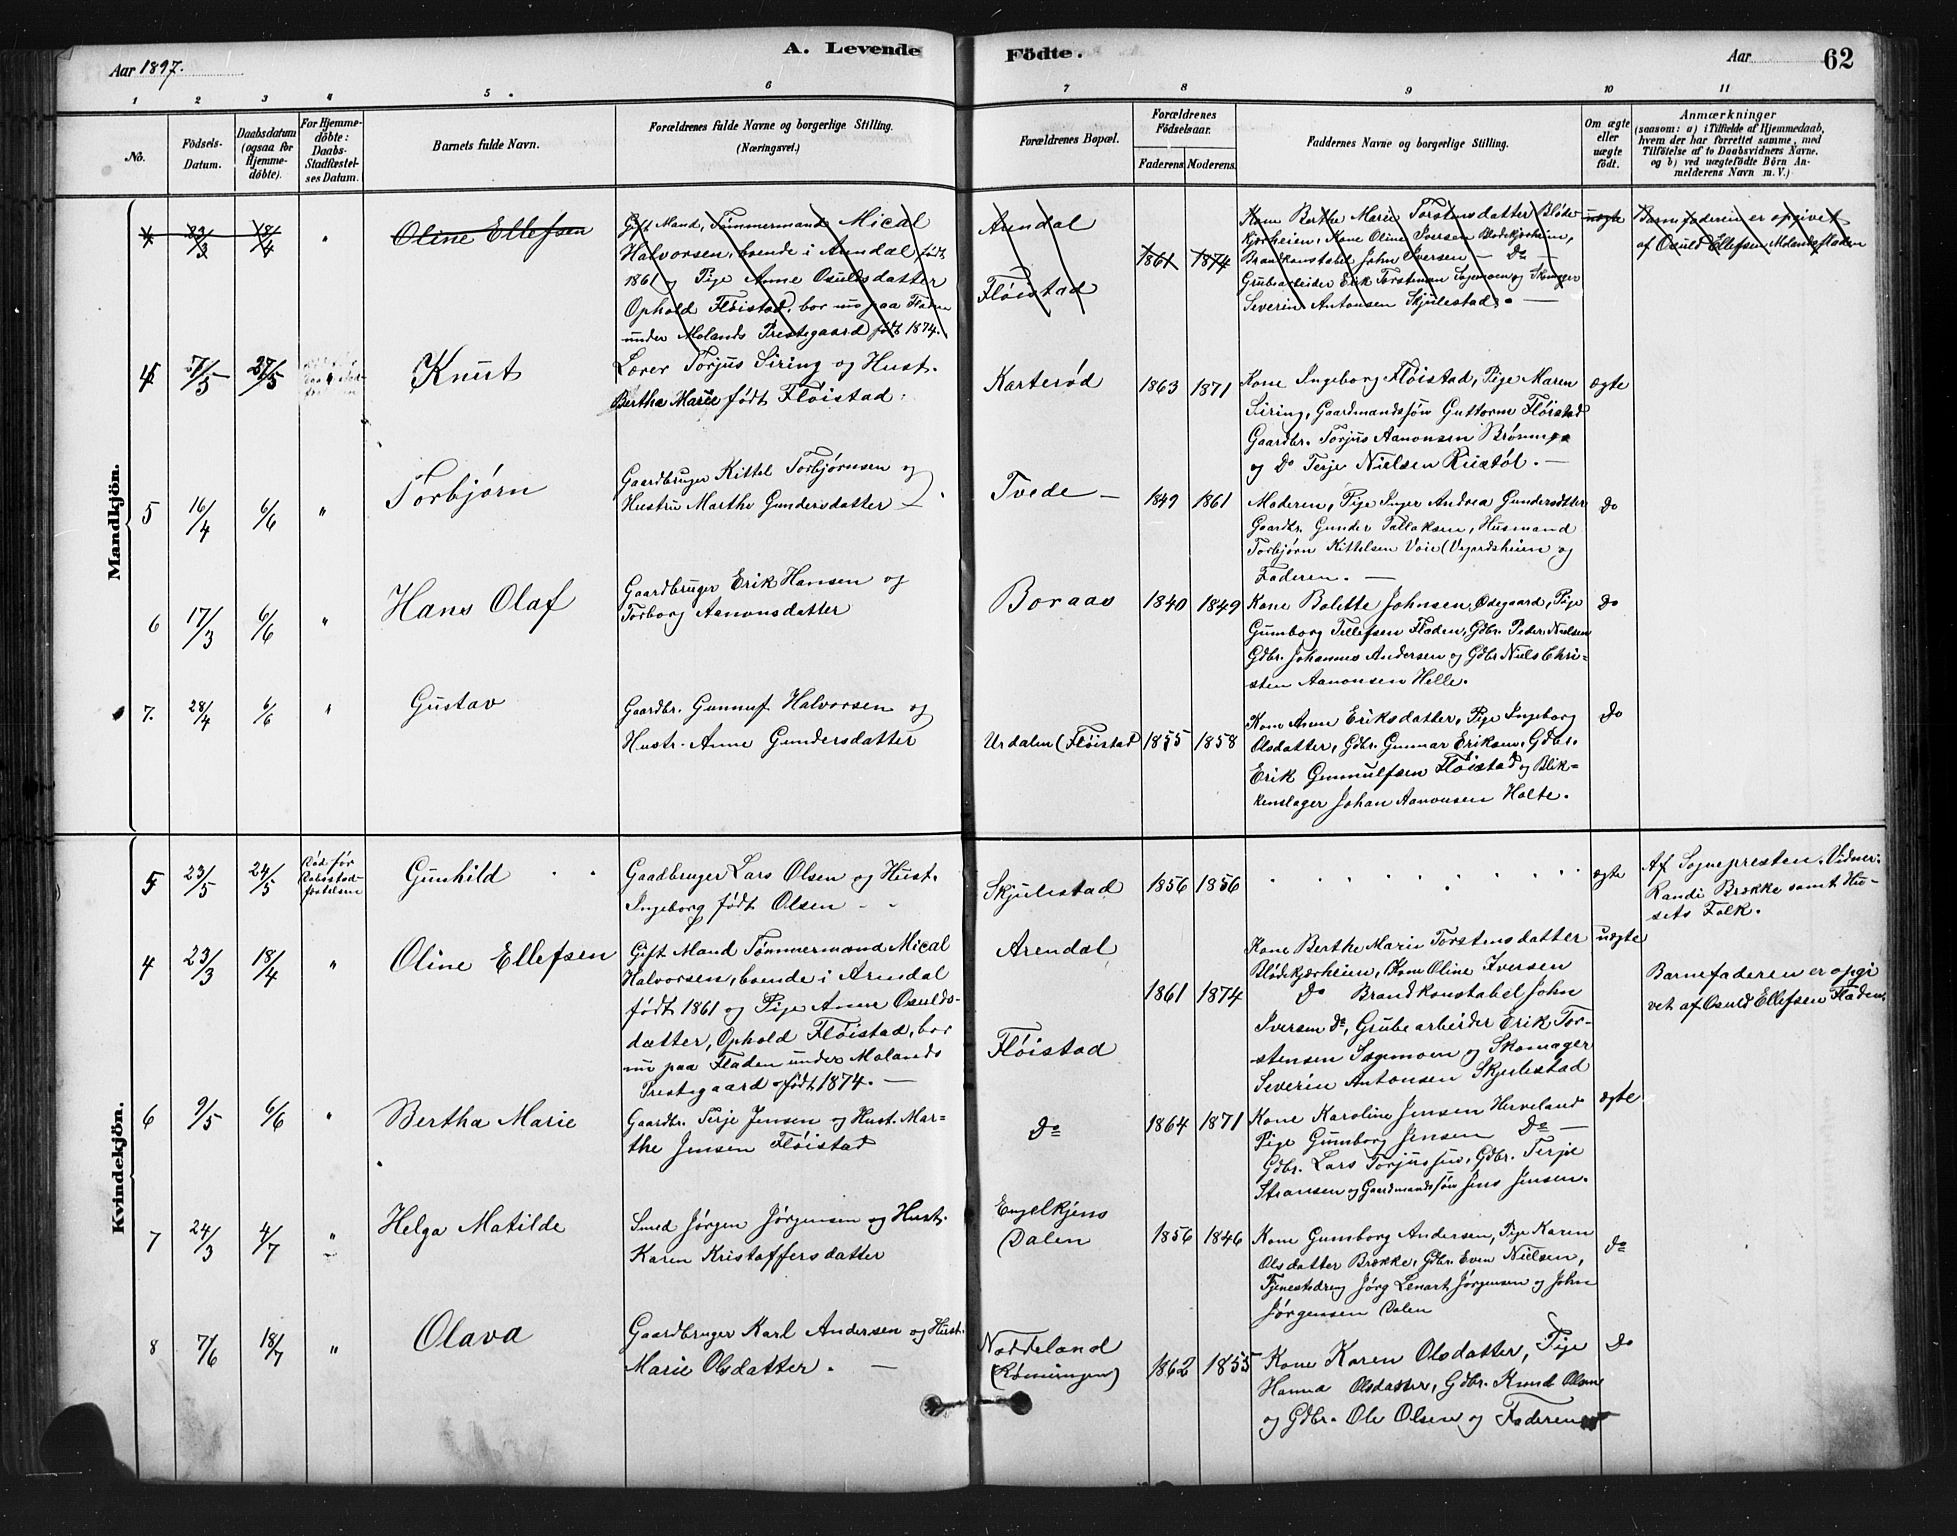 A. Levende Födte.
Aar 1897.
Aar 62
1 2 3 " 5 6 7 8 9 10 11
No.
Födsels-Datum.
Daabsdatum (ogsaa for Hjemme-döbte).
For Hjemme-döbte: Daabs-Stadfæstel-ses Datum.
Barnets fulde Navn.
Forældrenes fulde Navne og borgerlige Stilling.
(Næringsvei.)
Forældrenes Bopæl.
Forældrenes Födselsaar.
Faderens Moderens.
Faddernes Navne og borgerlige Stilling.
Om ægte eller uægte födt.
Anmærkninger
(saasom: a) i Tilfælde af Hjemmedaab,
hvem der har forrettet samme, med
Tilföielse af to Daabsvidners Navne,
og b) ved uægtefödte Börn An-
melderens Navn m. V.)
Mandkjön.
4 23/3 18/4 " Oline Ellefsen
Gift Mand, Tømmermand Mical
Halvorsen, boende i Arndal, født
1861 og Pige Anne Osuldsdatter
Ophold Fløistad, bor nu paa Fladen
under Molands Prestegaard født 1874.
Arndal
Fløistad
1861 1874
Kone Berthe Marie Torstensdatter Bløde-
kjærheien, Kone Oline Iversen Blødekjærheien,
Brandkonstabel John Iversen — Do —
Grubearbeider Erik Torstensen Sagemoen og Skomager
Severin Antonsen Skjulestad. —
uægte
Barnefaderen er opgivet
af Osuld Ellefsen Molandsfladen
4 27/5
Knut
Lærer Torjus Siring og Hust.
Bertha Marie født Fløistad.
Karterød
1863 1871
Kone Ingeborg Fløistad, Pige Maren
Siring, Gaardmandssøn Guttorm Fløistad
Gaardbr. Torjus Aanonsen
og Do Terje Nielsen Rustøl. —
ægte
5 16/4 6/6 " Torbjørn
Gaardbruger Kittel Torbjørnsen og
Hustru Marthe Gundersdatter —
Tvede —
1849 1861
Moderen, Pige Inger Andrea Gundersdtter
Gaardbr. Gunder Tallaksen, Husmand
Torbjørn Kittelsen Voie (Vegardsheien og
Faderen. —
Do
6 17/3 6/6 " Hans Olaf
Gaardbruger Erik Hansen og
Torborg Aanonsdatter
Boraas
1840 1849
Kone Bolette Johnsen, Osegaard, Pige
Gumborg Tellefsen Fladen, Gdbr. Peder Nielsen
Gdbr. Johannes Andersen og Gdbr Niels Chri-
sten Aanonsen Helle.
Do
7. 28/4 6/6 " Gustav
Gaardbr. Gunnuf Halvorsen og
Hustr. Anne Gundersdatter
Urdalen (Fløistad
1855 1858
Kone Anne Eriksdatter, Pige Ingeborg
Olsdatter, Gdbr. Gunnar Eriksen, Gdbr.
Erik Gunnulfsen Fløistad og Blik-
kenslager Johan Aanonsen Holte.
Do
Kvindekjön.
5 23/5 24/5
Gunhild " "
Gaadbruger Lars Olsen og Hust.
Ingeborg født Olsen " "
Skjulestad
1856 1856
ægte
Af Sognepresten. Vidner:
Randi Brække samt Hu-
sets Folk.
4 23/3 18/4 " Oline Ellefsen
Gift Mand Tømmermand Mical
Halvorsen, boende i Arndal
født 1861 og Pige Anne Osulds-
datter, Ophold Fløistad, bor
nu paa Fladen under Molands
Prestegaard født 1874. —
Arendal
Fløistad
1861 1874
Kone Berthe Marie Torstensdatter
Blødekjærheien, Kone Oline Iversen
Do Brandkonstabel John
Iversen Do, Grubearbeider Erik Tor-
stensen Sagemoen og Skomager
Severin Antonsen Skjulestad
uægte
Barnefaderen er opgi
vet af Osuld Ellefsen Fladen.
6 9/5 6/6 " Bertha Marie
Gaardbr. Terje Jensen og Hust. Mar-
the Jensen Fløistad
Do
1864 1871
Kone Karoline Jensen Herveland
Pige Gumborg Jensen Do —
Gdbr. Lars Torjussen, Gdbr. Terje
Stiansen og Gaardmandssøn Jens Jensen.
ægte
7 24/3 4/7 " Helga Matilde
Smed Jørgen Jørgensen og Hust.
Karen Kristoffersdatter
Engelkjens
(Dalen
1856 1846
Kone Gumborg Andersen, Pige Karen
Olsdatter Brække, Gdbr. Even Nielsen,
Tjenestedreng Jørg Lenart Jørgensen og John
Jørgensen Dalen
Do
8 7/6 18/7 " Olava
Gaardbruger Karl Andersen og Hust.
Marie Olsdatter. —
Nødeland
1862 1855
Kone Karen Olsdatter, Pige
Hanna Olsdatter, Gdbr. Knud Olsen
og Gdbr. Ole Olsen og Faderen
Do